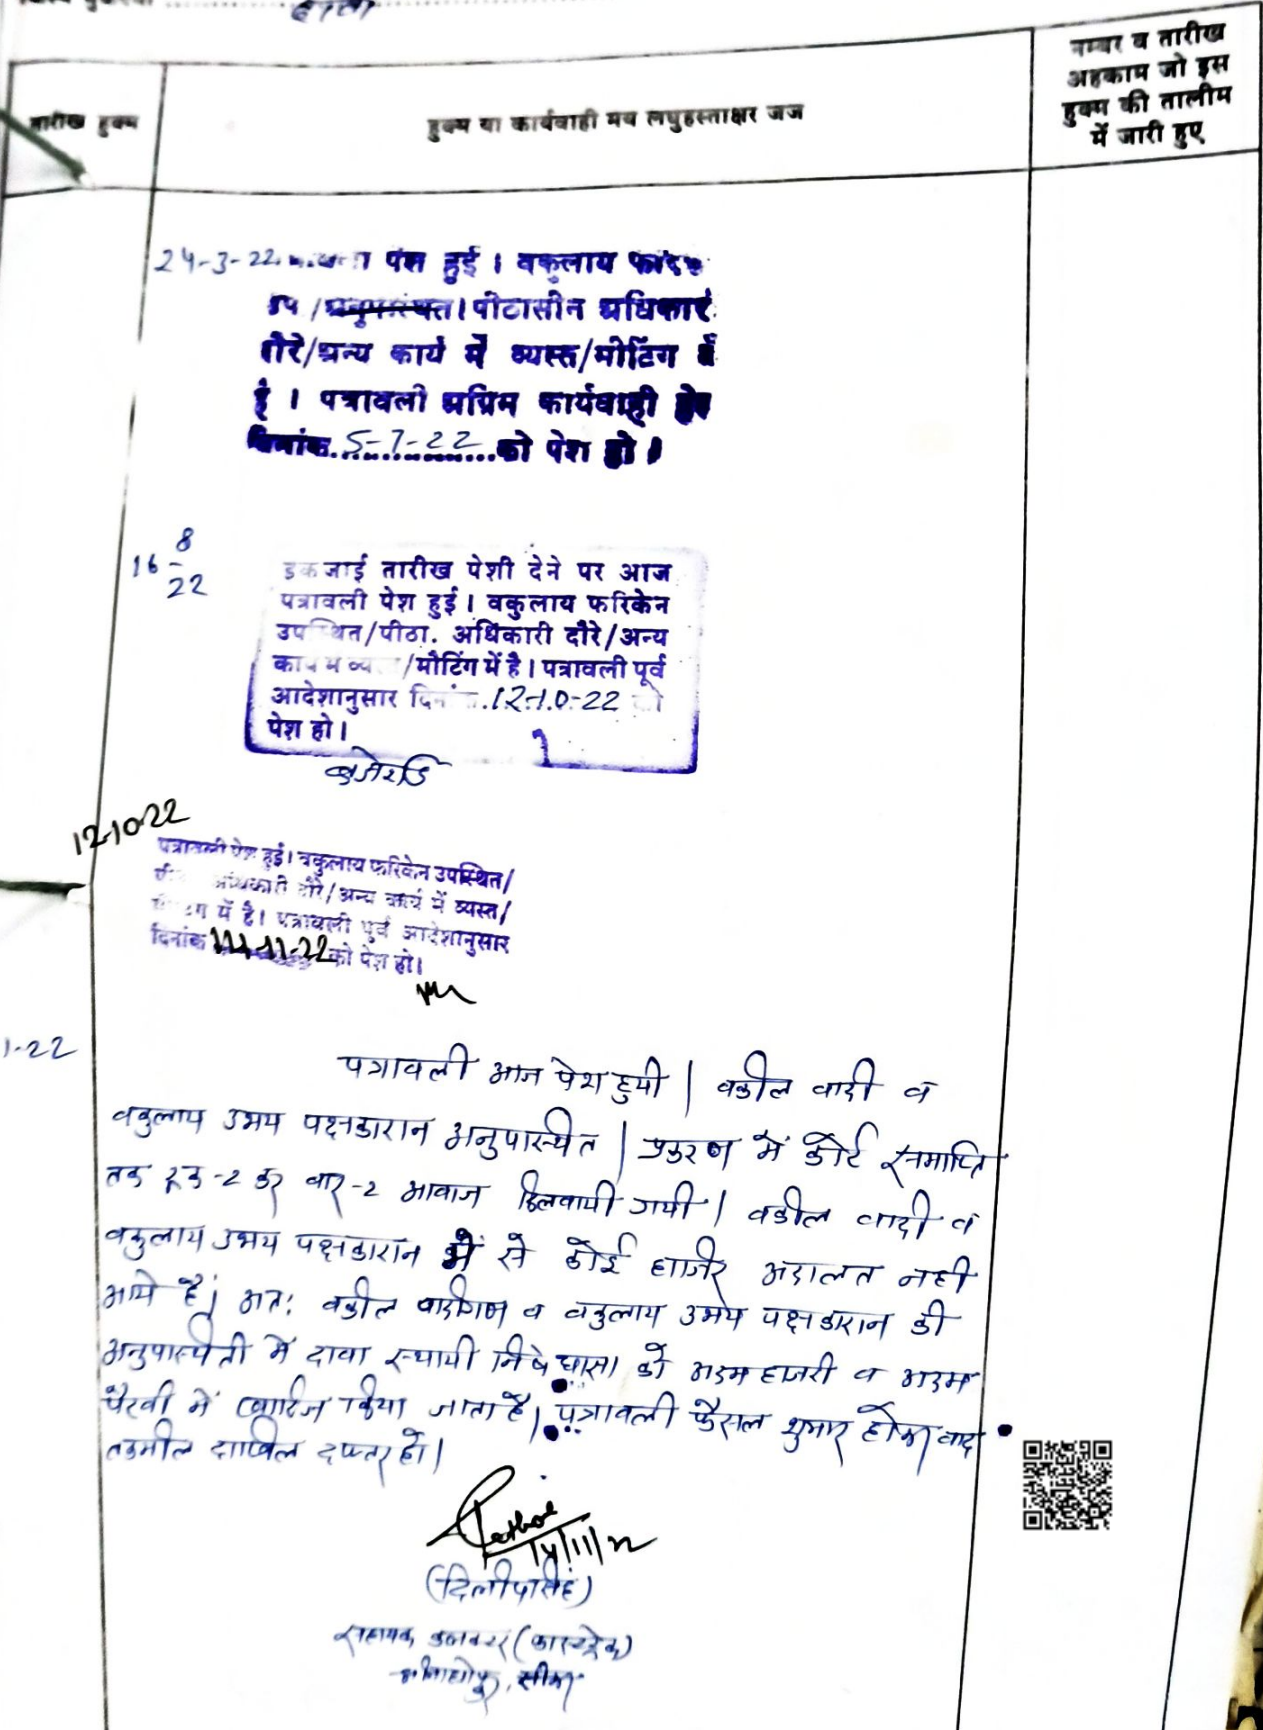 तारीख हुक्म
हुक्म या कार्यवाही मय लघुहस्ताक्षर जज
नम्बर व तारीख
अहकाम जो इस
हुक्म की तालीम
में जारी हुए
24-3-22 पेश हुई । वकुलाय
/अनुपस्थित। पीठासीन अधिकारी
दौरे/अन्य कार्य में व्यस्त/मीटिंग में
है । पत्रावली अग्रिम कार्यवाही हेतु
दिनांक 5-7-22 को पेश हो ।
16 8/22
इकजाई तारीख पेशी देने पर आज
पत्रावली पेश हुई। वकुलाय फरिकेन
उपस्थित/पीठा. अधिकारी दौरे/अन्य
कार्य में व्यस्त/मीटिंग में है। पत्रावली पूर्व
आदेशानुसार दिनांक 12-10-22 को
पेश हो।
12-10-22
पत्रावली पेश हुई। वकुलाय फरिकेन उपस्थित/
अधिकारी दौरे/अन्य कार्य में व्यस्त/
में है। पत्रावली पूर्व आदेशानुसार
दिनांक 14-11-22 को पेश हो।
1-22
पत्रावली आज पेश हुयी | वकील वादी व
वकुलाय उभय पक्षकारान अनुपास्थित | प्रकरण में कोर्ट समाप्ति
तक रूक-2 कर बार-2 आवाज दिलवायी गयी | वकील वादी व
वकुलाय उभय पक्षकारान में से कोई हाजिर अदालत नही
आये है| अत: वकील वादीगण व वकुलाय उभय पक्षकारान की
अनुपास्थिती में दावा स्थायी निषेधाज्ञा को अदम हाजरी व अदम
पैरवी में खारिज किया जाता है| पत्रावली फैसल शुमार होकर बाद
तकमील दाखिल दफ्तर हो।
14/11/22
(दिलीपसिंह)
सहायक कलक्टर (फास्टट्रेक)
श्रीमाधोपुर, सीकर